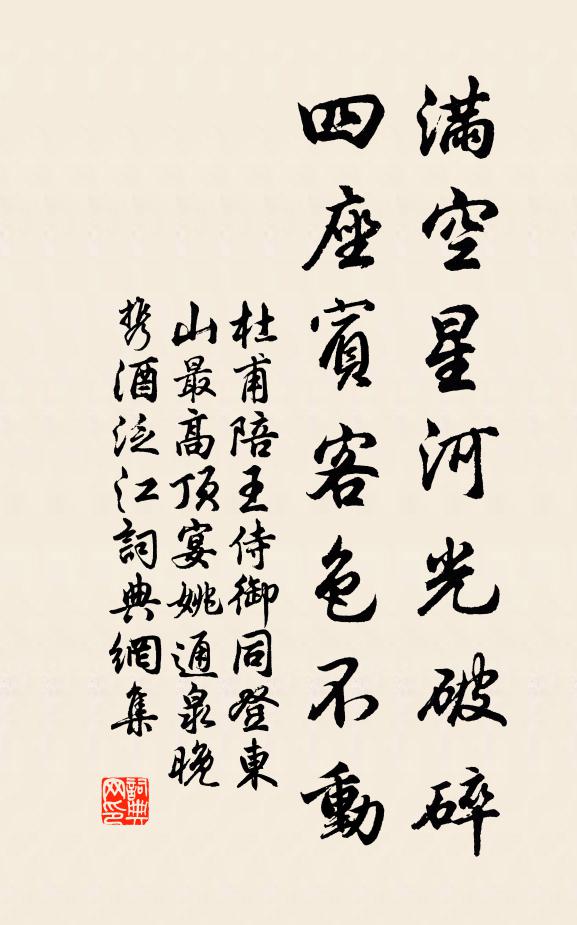 滿空星河光破碎
四座賓客色不動
杜甫陪王侍御同登東
山最高頂宴姚通泉晚
攜酒泛江詞典網集
詞典
网印